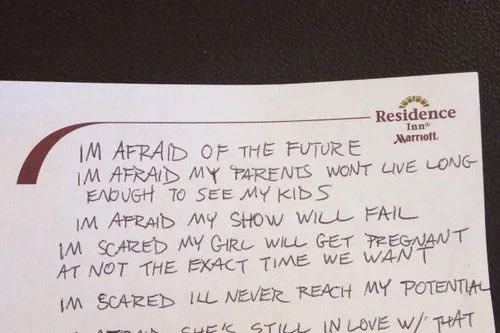 Residence
Inn®
Marriott.
IM AFRAID OF THE FUTURE
IM AFRAID MY PARENTS WONT LIVE LONG
ENOUGH TO SEE MY KIDS
IM AFRAID MY SHOW WILL FAIL
IM SCARED MY GIRL WILL GET PREGNANT
AT NOT THE EXACT TIME WE WANT
IM SCARED ILL NEVER REACH MY POTENTIAL
AFRAID SHE'S STILL IN LOVE W/ THAT